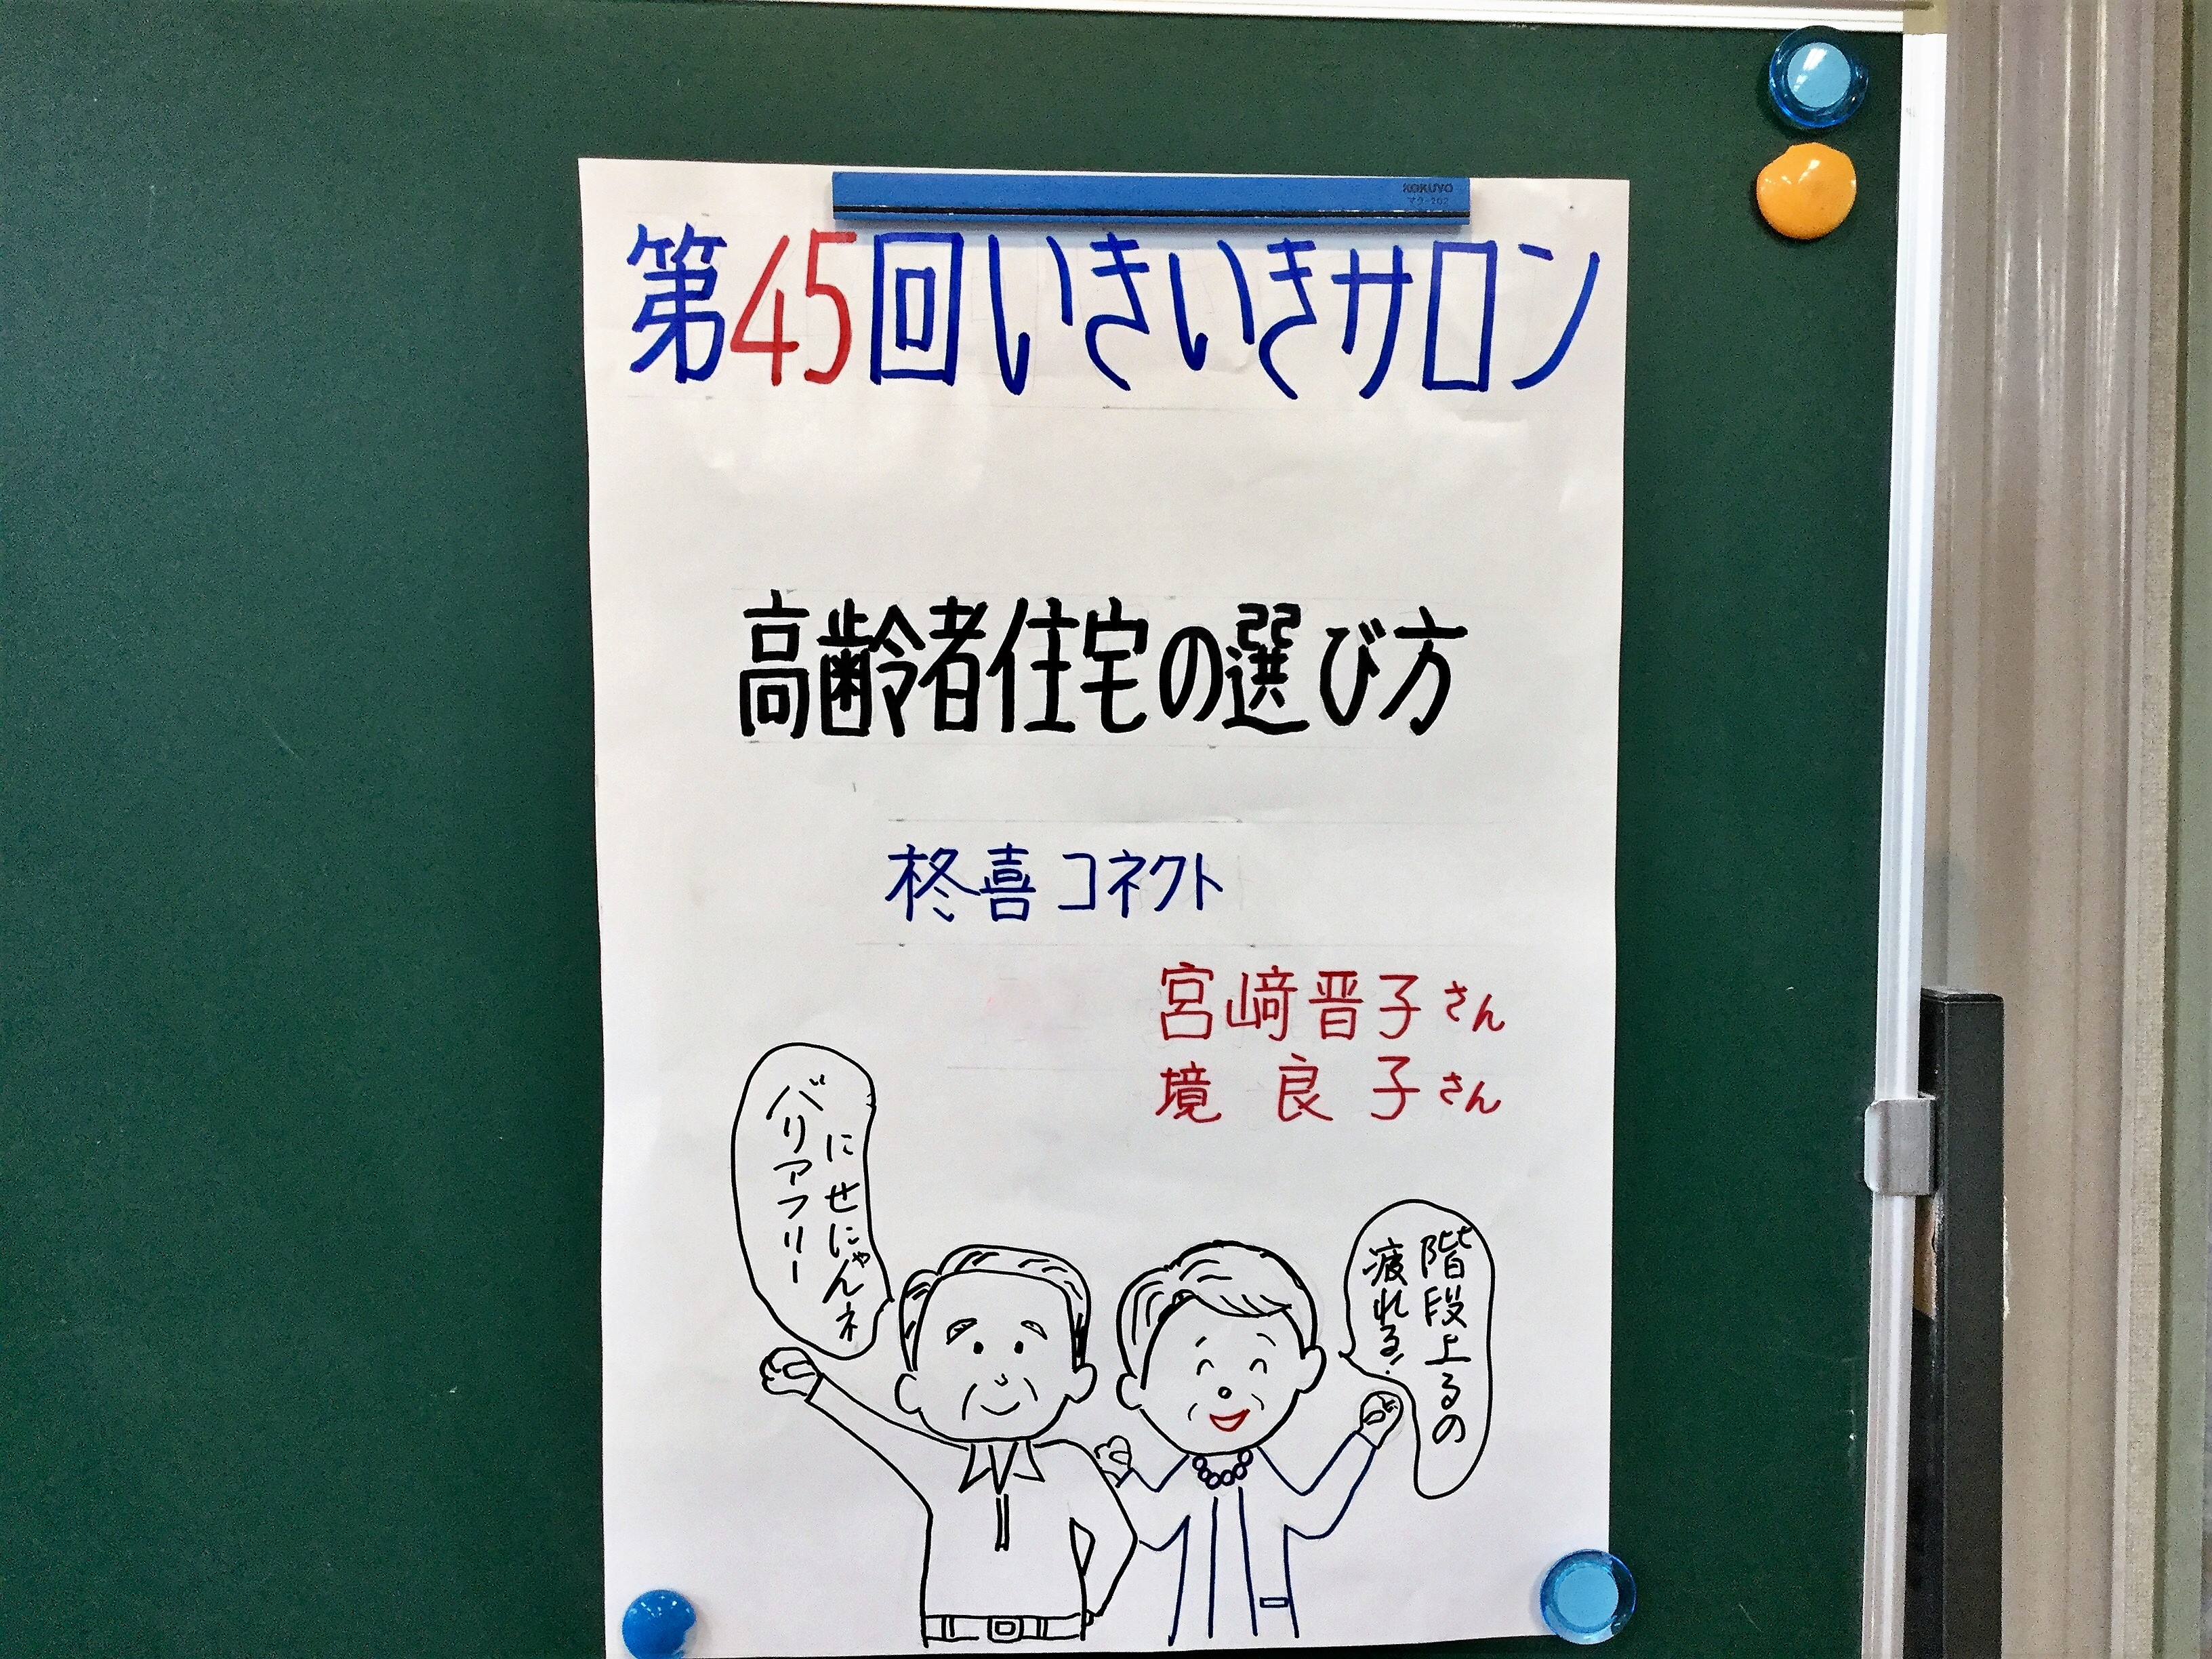 KOKUYO
マク-202
第45回いきいきサロン
高齢者住宅の選び方
柊喜コネクト
宮﨑晋子さん
境 良 子さん
バリアフリー
にせにゃんネ
階段上るの
疲れる!